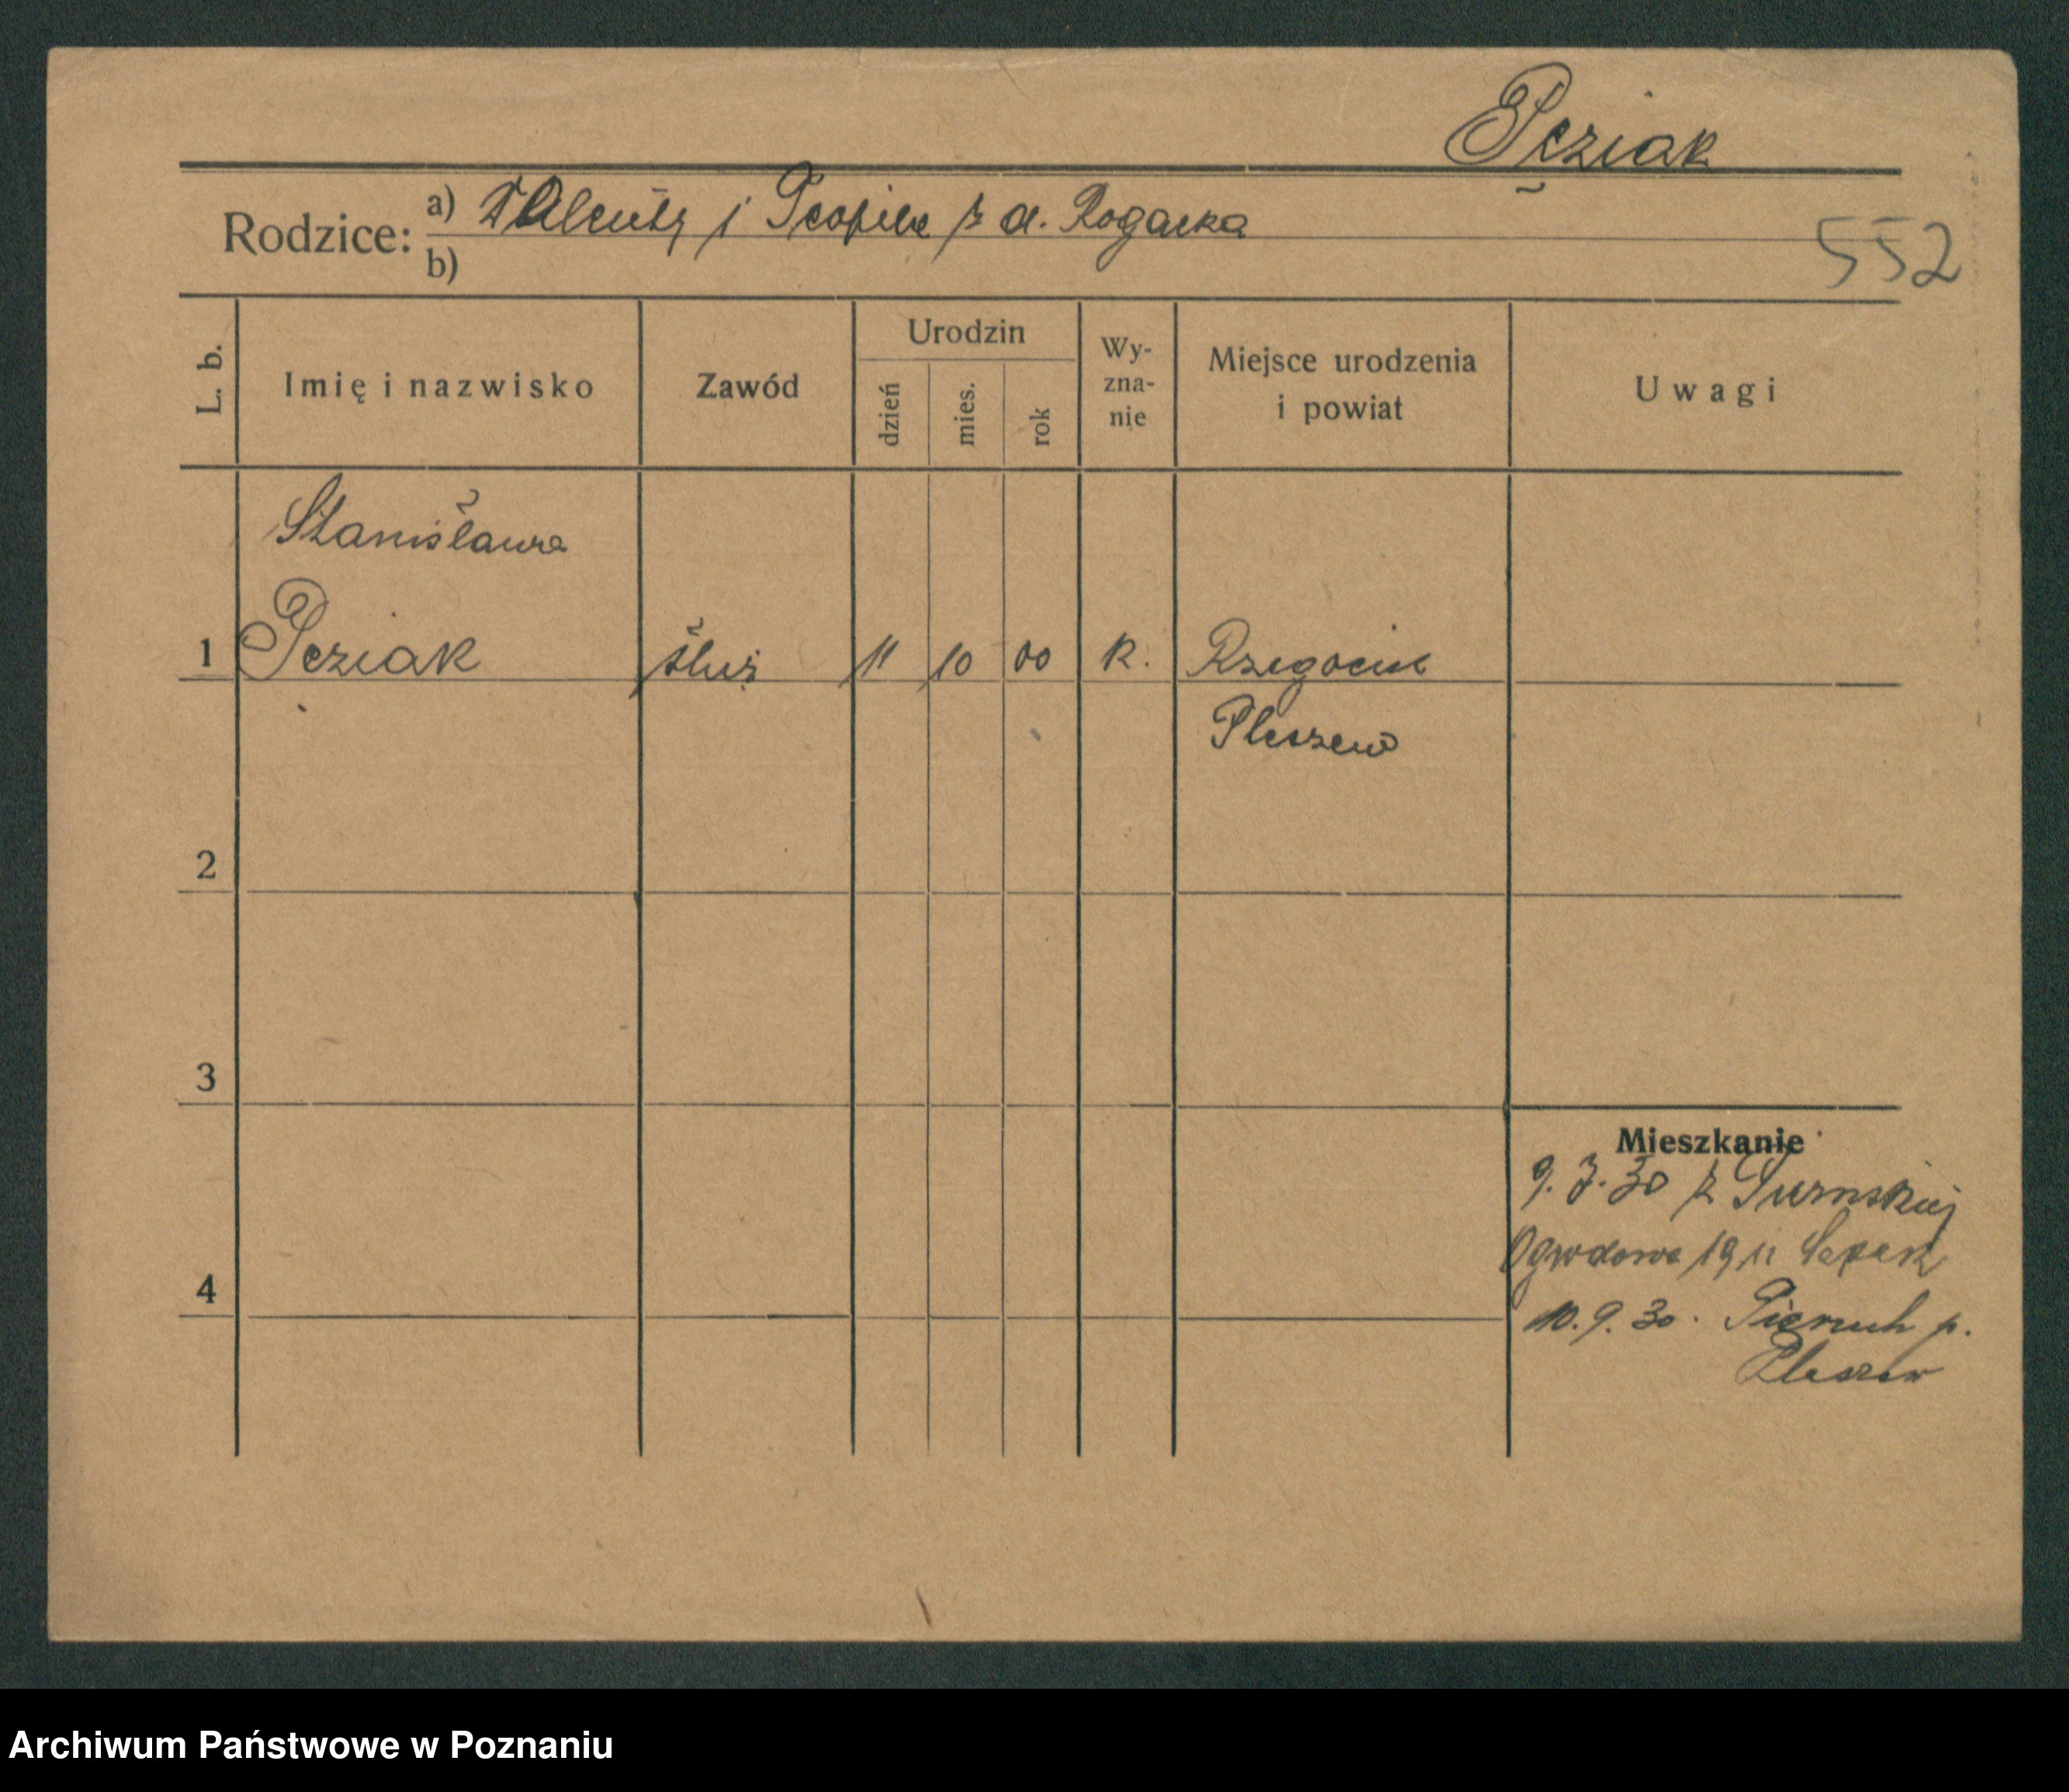 Peziak
Rodzice: a) Walenty i Teofila z d. Rogacka
b)
552
L. b.
Imię i nazwisko
Zawód
Urodzin
dzień
mies.
rok
Wy-
zna-
nie
Miejsce urodzenia
i powiat
Uwagi
Stanisława
1 Peziak służ 11 10 00 k. Rzegocin
Pleszew
2
3
Mieszkanie
9. 7. 30 z
Ogrodowa 19
4
10. 9. 30. p.
Pleszew
Archiwum Państwowe w Poznaniu